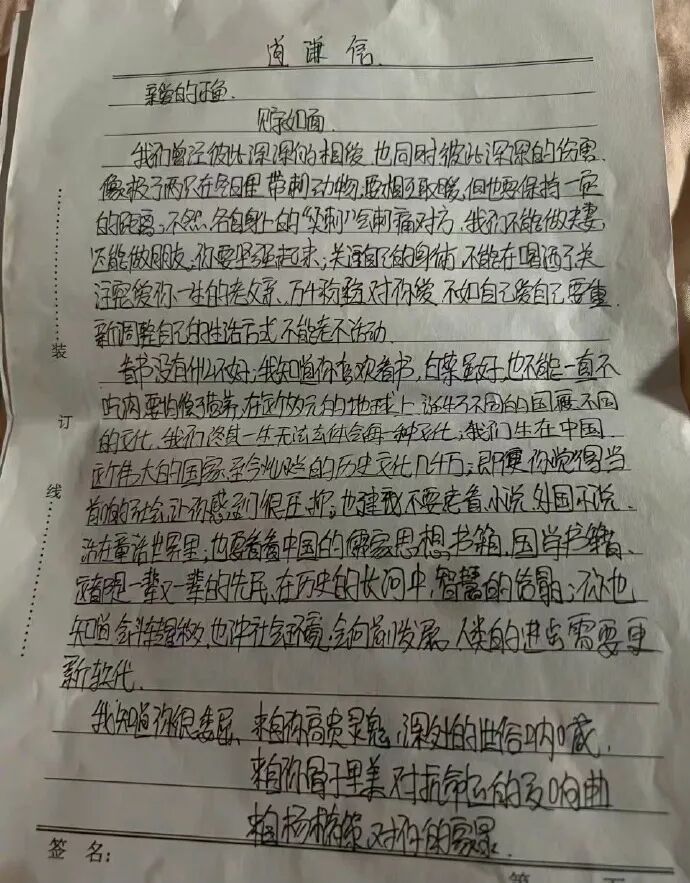 道谦信
亲爱的
见字如面
我们曾经彼此深深的相爱也同时彼此深深的伤害
像极了两只在冬日里带刺动物,要相互取暖,但也要保持一定
的距离;不然,各自身上的"尖刺"会刺痛对方,我们不能做夫妻
还能做朋友,你要坚强起来;关注自己的身体,不能在喝酒了关
注疼爱你一生的老父亲、万千粉丝对你爱,不如自己爱自己要重
新调整自己的生活方式不能老不活动
看书没有什么不好,我知道你喜欢看书,白菜虽好,也不能一直不
吃肉要均衡营养,在这个多元的地球上,诞生了不同的国度不同
的文化,我们终其一生无法去体会每一种文化;我们生在中国
这个伟大的国家,至今灿烂的历史文化几千万;即便你觉得当
前的社会让你感到很压抑;也建议不要老看小说,外国小说,
活在童话世界里;也要看看中国的儒家思想书籍,国学书籍、
这都是一辈又一辈的先民,在历史的长河中,智慧的结晶;你也
知道会斗转星移,也冲社会环境,会向前发展,人类的进步需要更
新软代
我知道你很委屈、来自你高贵灵魂,深处的世俗呐喊,
来自你骨子里美对抗命运的交响曲
来自杨 对你的
装
订
线
签 名: